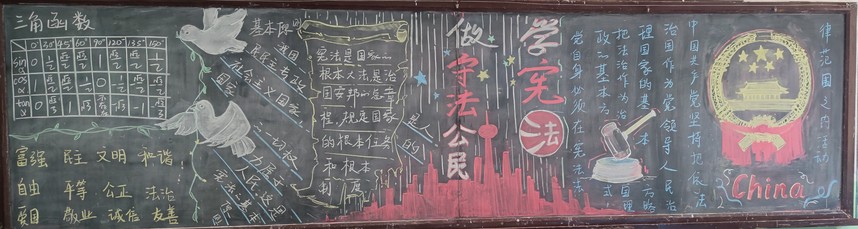 三角函数
0° 30° 45° 60° 90° 120° 135° 150°
sin α 0 1/2 √2/2 √3/2 1 √3/2 √2/2 1/2
cos α 1 √3/2 √2/2 1/2 0
tan α 0 1 √3 -1
富强 民主 文明 和谐
自由 平等 公正 法治
爱国 敬业 诚信 友善
基本职
我国
人民民主专政
社会主义国家
国家
一切权
力属于
人民,这是
宪法
基本
原
宪法是国家的
根本大法是治
国安邦的总章
程,规定国家
的根本任务
和根本
制度
是人
的
做守法公民
学宪法
律范围之内活动
中国共产党坚持把依法
治国作为党领导人民治
理国家的基本方略
把法治作为治国理
政的基本方式
党自身必须在宪法
China